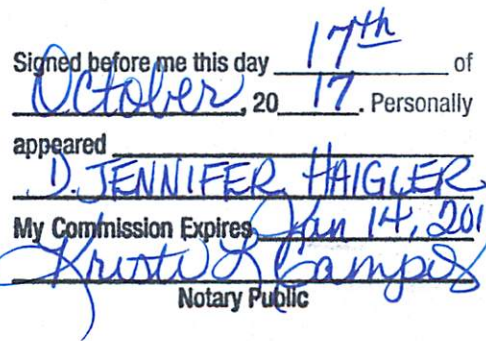 Signed before me this day 17th of
October, 20 17. Personally
appeared
D. JENNIFER HAIGLER
My Commission Expires Jan 14, 201
Kristi L Campos
Notary Public